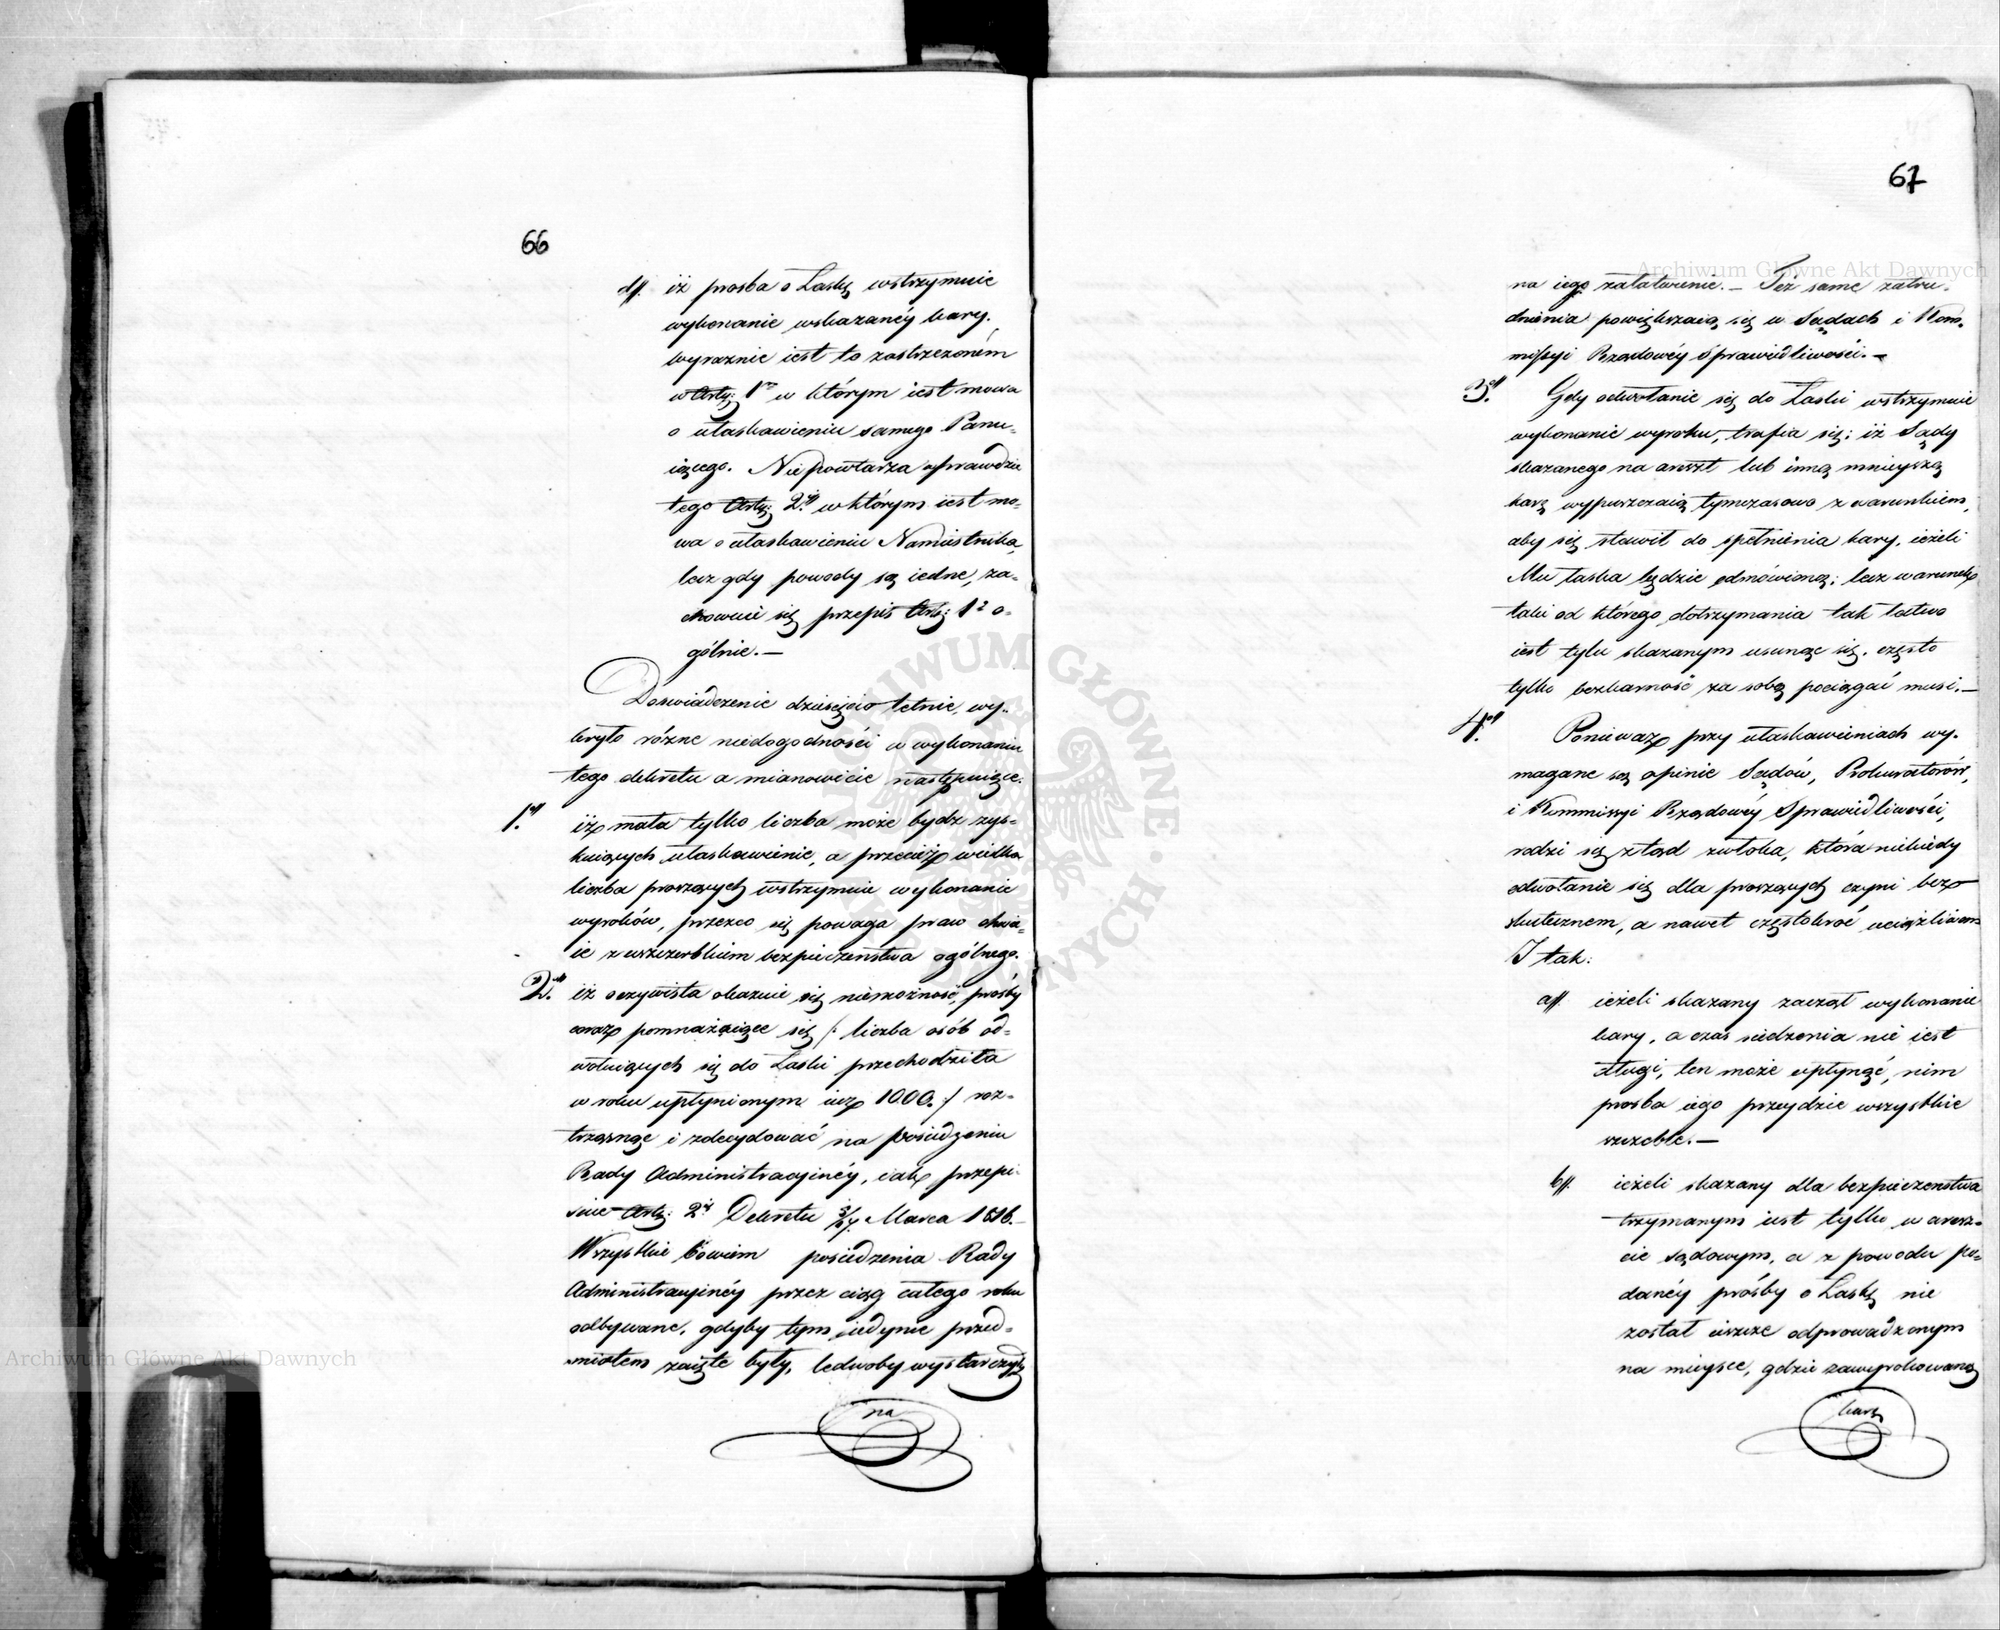 66
d//. iż prosba o Łaskę wstrzymuie
wykonanie wskazanéy kary.
wyraznie iest to zastrzezoném
w Arty: 1º w którym iest mowa
o ułaskawieniu samego Panu-
iącego. Nie powtarza wprawdzie
tego Arty: 2º w którym iest mo-
wa o ułaskawieniu Namiestnika,
lecz gdy powody są iedne, za-
chowuie się przepis Arty: 1º o-
gólnie.—
Doswiadczenie dziesięcio letnie, wy-
kryło różne niedogodności w wykonaniu
tego dekretu a mianowicie następuiące:
1. iż mała tylko liczba może bydź zys-
kuiących ułaskawienie, a przecież wielka
liczba proszących wstrzymuie wykonanie
wyroków, przezco się powaga praw chwie-
ie z uszczerbkiem bezpieczenstwa ogólnego.
2. iż oczywista okazuie się niemożność, prośby
coraz pomnażaiące się /: liczba osób od-
wołuiących się do Łaski przechodziła
w roku upłynionym iuż 1000. :/ roz-
trząsnąć i zdecydować na posiedzeniu
Rady Administracyinéy, iak przepi-
suie Arty: 2º Dekretu Marca 1816.
Wszystkie bowiem posiedzenia Rady
Administracyinéy przez ciąg całego roku
odbywane, gdyby tym iedynie przed-
miotem zaięte były, ledwoby wystarczyły
na
67
na iego załatwienie.— Też same zatru-
dnienia powiększaią się w Sądach i Kom-
missyi Rządowéy Sprawiedliwości.—
3. Gdy odwołanie się do Łaski wstrzymuie
wykonanie wyroku, trafia się: iż Sądy
skazanego na areszt lub inną mnieyszą
karę wypuszczaią tymczasowo z warunkiem,
aby się stawił do spełnienia kary, ieżeli
Mu łaska będzie odmówioną; lecz warunek
taki od którego dotrzymania tak łatwo
iest tylu skazanym usunąć się, często
tylko bezkarność za sobą pociągać musi.—
4. Ponieważ przy ułaskawieniach wy-
magane są opinie Sądów, Prokuratorów,
i Kommissyi Rządowéy Sprawiedliwości,
rodzi się ztąd zwłoka, która niekiedy
odwołanie się dla proszących czyni bez-
skutecznem, a nawet częstokroć uciążliwem
I tak:
a//. ieżeli skazany zaczął wykonanie
kary, a czas siedzenia nie iest
długi, ten może upłynąć, nim
prosba iego przeydzie wszystkie
szczeble.—
b//. ieżeli skazany dla bezpieczenstwa
trzymanym iest tylko w aresz-
cie sądowym, a z powodu po-
danéy prośby o Łaskę nie
został ieszcze odprowadzonym
na mieysce, gdzie zawyrokowaną
karę
Archiwum Główne Akt Dawnych
Archiwum Główne Akt Dawnych
ARCHIWUM GŁÓWNE AKT DAWNYCH